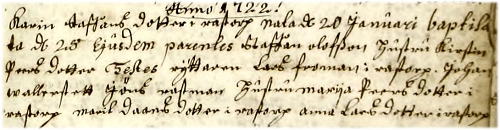 Anno 1722.
Karin Staffans dotter i rastorp nata dt 20 Januari baptisa
ta dt 25 Ejusdem parentes Staffan olofsson hustru Kirstin
Peers dotter Testes ryttaren Lars fronman i rastorp. Johan
wallerstett Jöns rastman hustru marija Peers dotter i
rastorp marit daans dotter i rastorp anna Lars dotter i rastorp